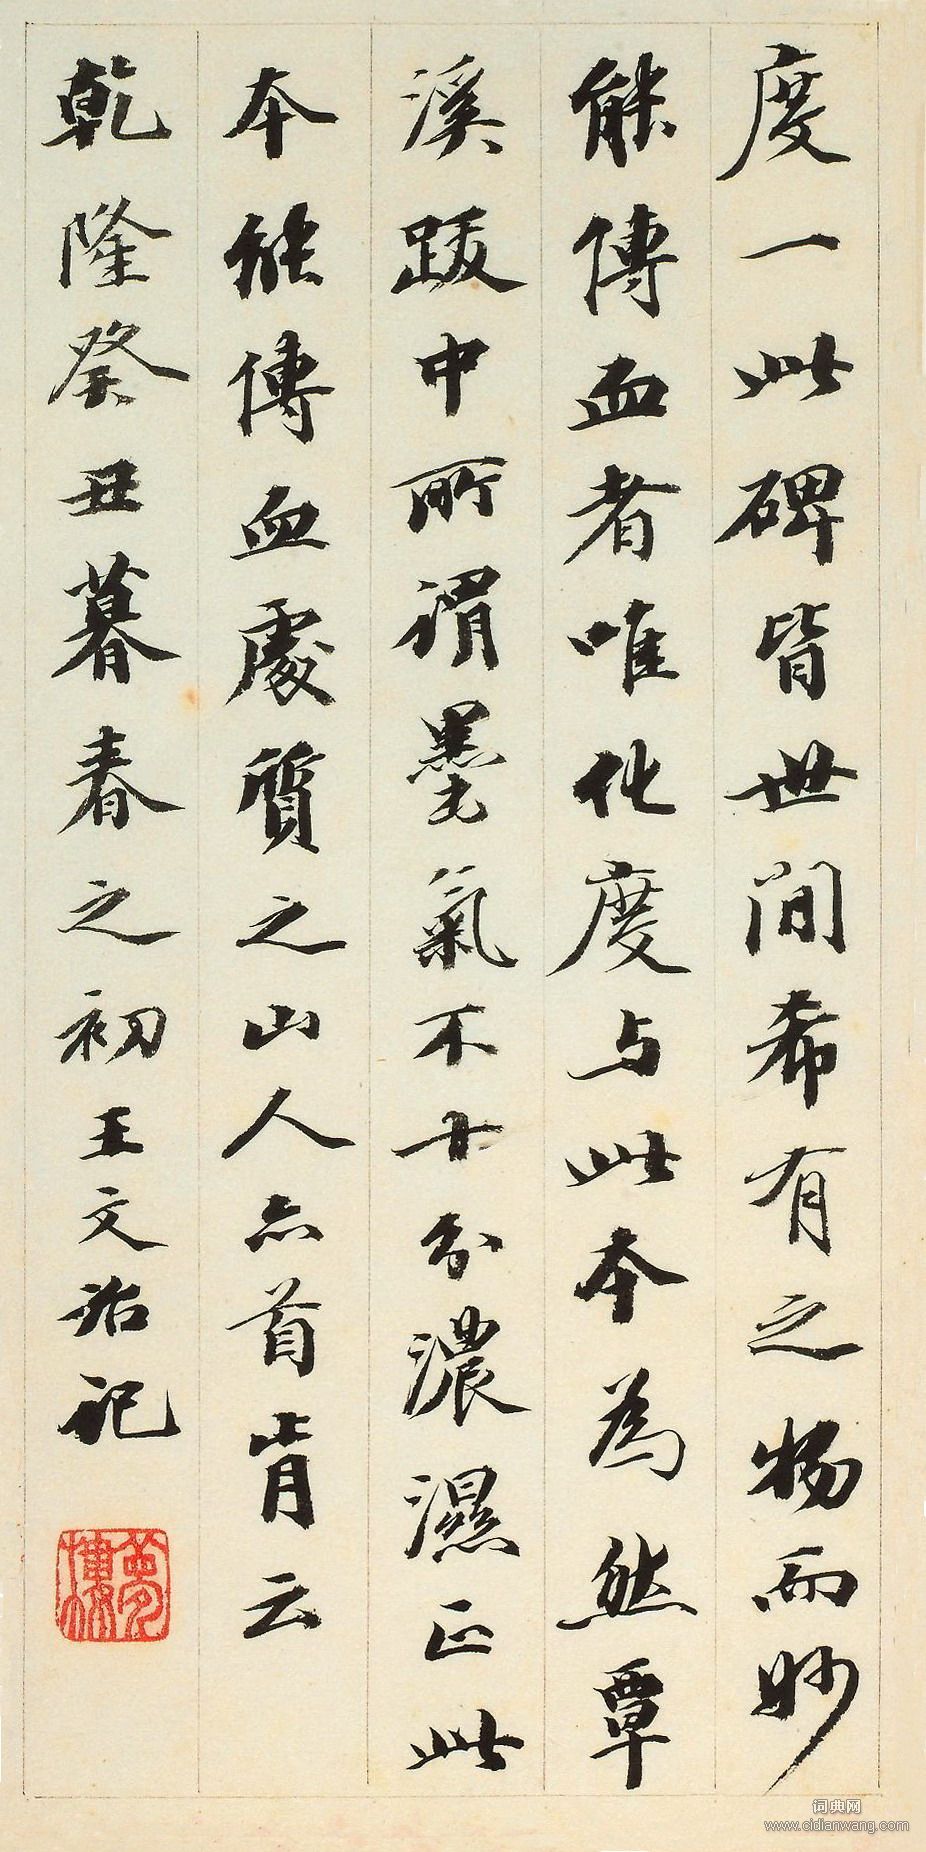 度一此碑皆世间希有之物而妙
能傳血者唯化度与此本為然覃
溪跋中所謂墨氣不十分濃濕正此
本能傳血處質之山人亦首肯云
乾隆癸丑暮春之初王文治記
夢樓
词典网
www.cidianwang.com